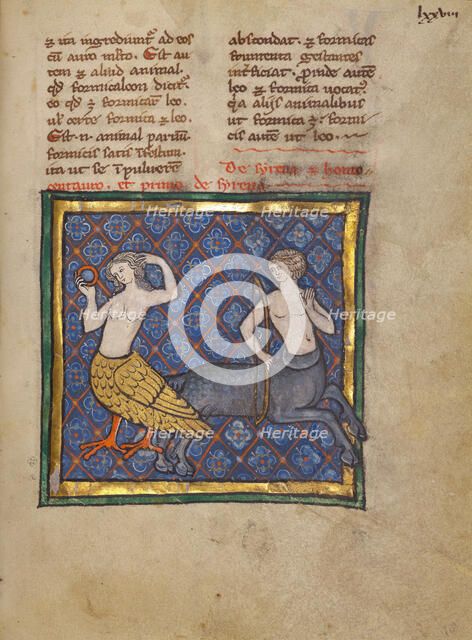 lxxviii
⁊ ita ingrediunt᷑ ad eos
cū auro
Est au
tem ⁊ aliud animal.
qd̄ formicaleon dicit᷑
qd̄ ⁊ formicaꝝ leo.
ul̓ certe formica ⁊ leo.
Est .n. animal paruū.
formicis satis īfestum.
ita ut se ī puluere
abscondat. ⁊ formicis
frumenta gestantes
int᷑ficiat. proinde autē
leo ⁊ formica uocat᷑.
q̄a alijs animalibus
ut formica ⁊ formi
cis autē ut leo.
De syrena ⁊ hono
centauro. et primo de syrena
Heritage
Heritage
Heritage
Heritage
Heritage
Heritage
Heritage
©